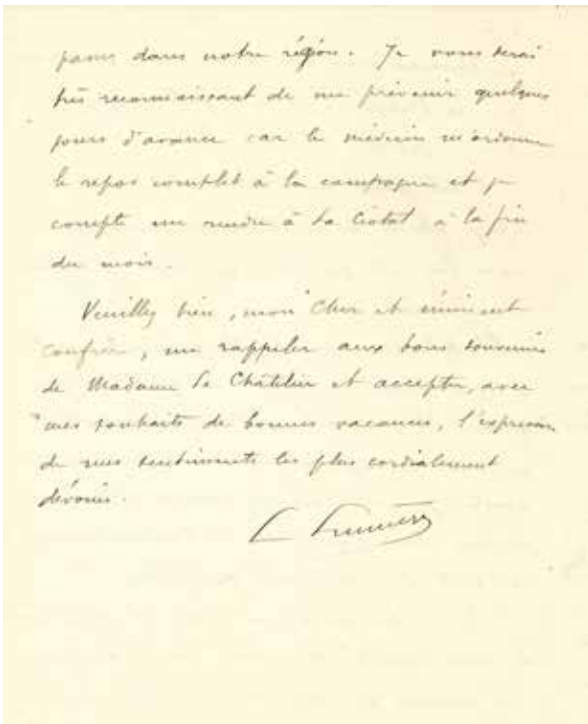 passer dans notre région. Je vous serai
très reconnaissant de me prévenir quelques
jours d'avance car le médecin m'ordonne
le repos complet à la campagne et je
compte me rendre à La Ciotat à la fin
du mois.
Veuillez bien, mon Cher et éminent
Confrère, me rappeler aux bons souvenirs
de Madame Le Châtelier et accepter, avec
mes souhaits de bonnes vacances, l'expression
de mes sentiments les plus cordialement
dévoués.
L Lumière